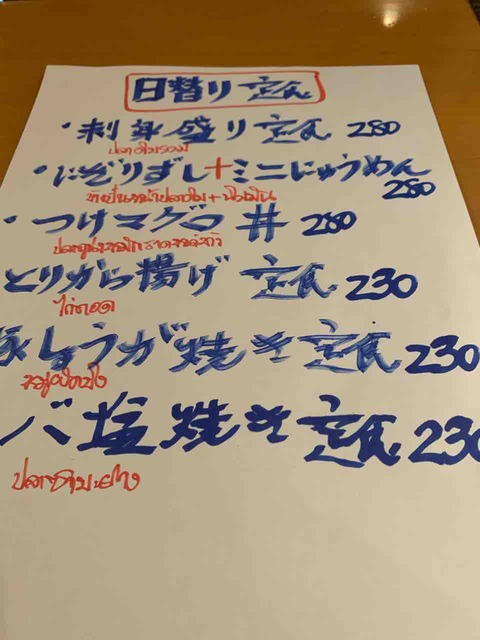 日替り定食
・刺身盛り定食 280
ปลาดิบรวม
・にぎりずし+ミニにゅうめん
280
・つけマグロ丼 280
とりから揚げ 定食 230
ไก่ทอด
しょうが焼き定食 230
バ塩焼き定食 230
ปลาซาบะย่าง